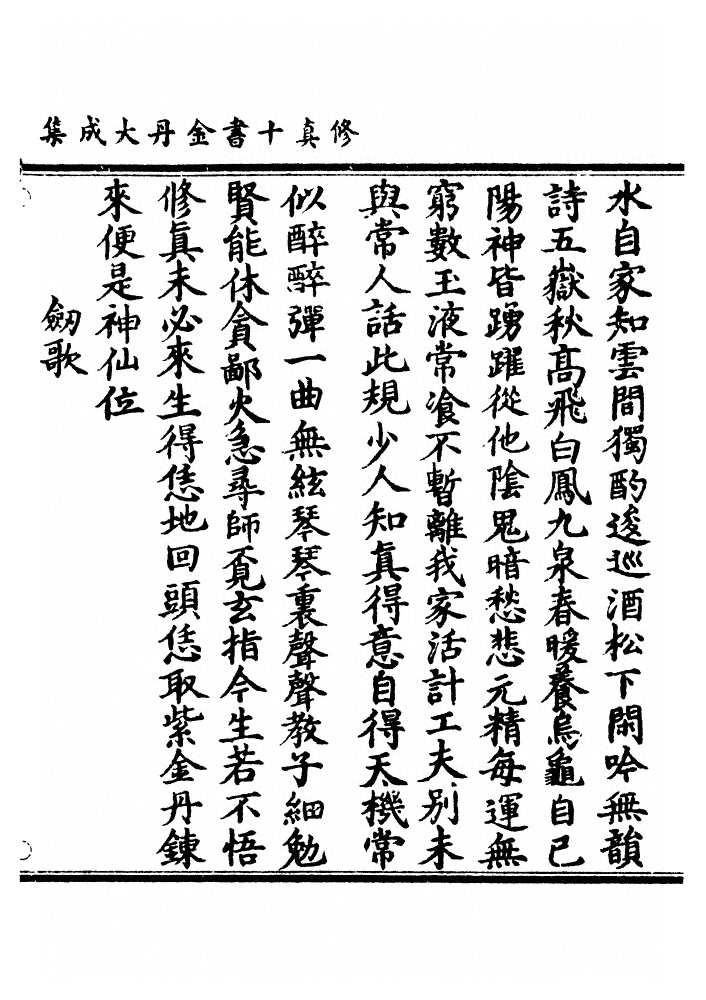 修真十書金丹大成集
水自家知雲間獨酌逡巡酒松下閑吟無韻
詩五嶽秋高飛白鳳九泉春暖養烏龜自己
陽神皆踴躍從他陰鬼暗愁悲元精每運無
窮數玉液常飡不暫離我家活計工夫別未
與常人話此規少人知真得意自得天機常
似醉醉彈一曲無絃琴琴裏聲聲教子細勉
賢能休貪鄙火急尋師覔玄指今生若不悟
修真未必來生得恁地回頭恁取紫金丹鍊
來便是神仙位
劔歌